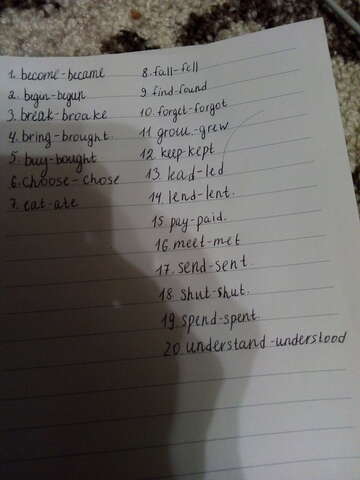 1. become-became
2. begin-begun
3. break-broake
4. bring-brought
5. buy-bought
6. choose-chose
7. eat-ate
8. fall-fell
9. find-found
10. forget-forgot
11. grow-grew
12. keep-kept
13. lead-led
14. lend-lent.
15. pay-paid.
16. meet-met
17. send-sent.
18. shut-shut.
19. spend-spent
20. understand-understood